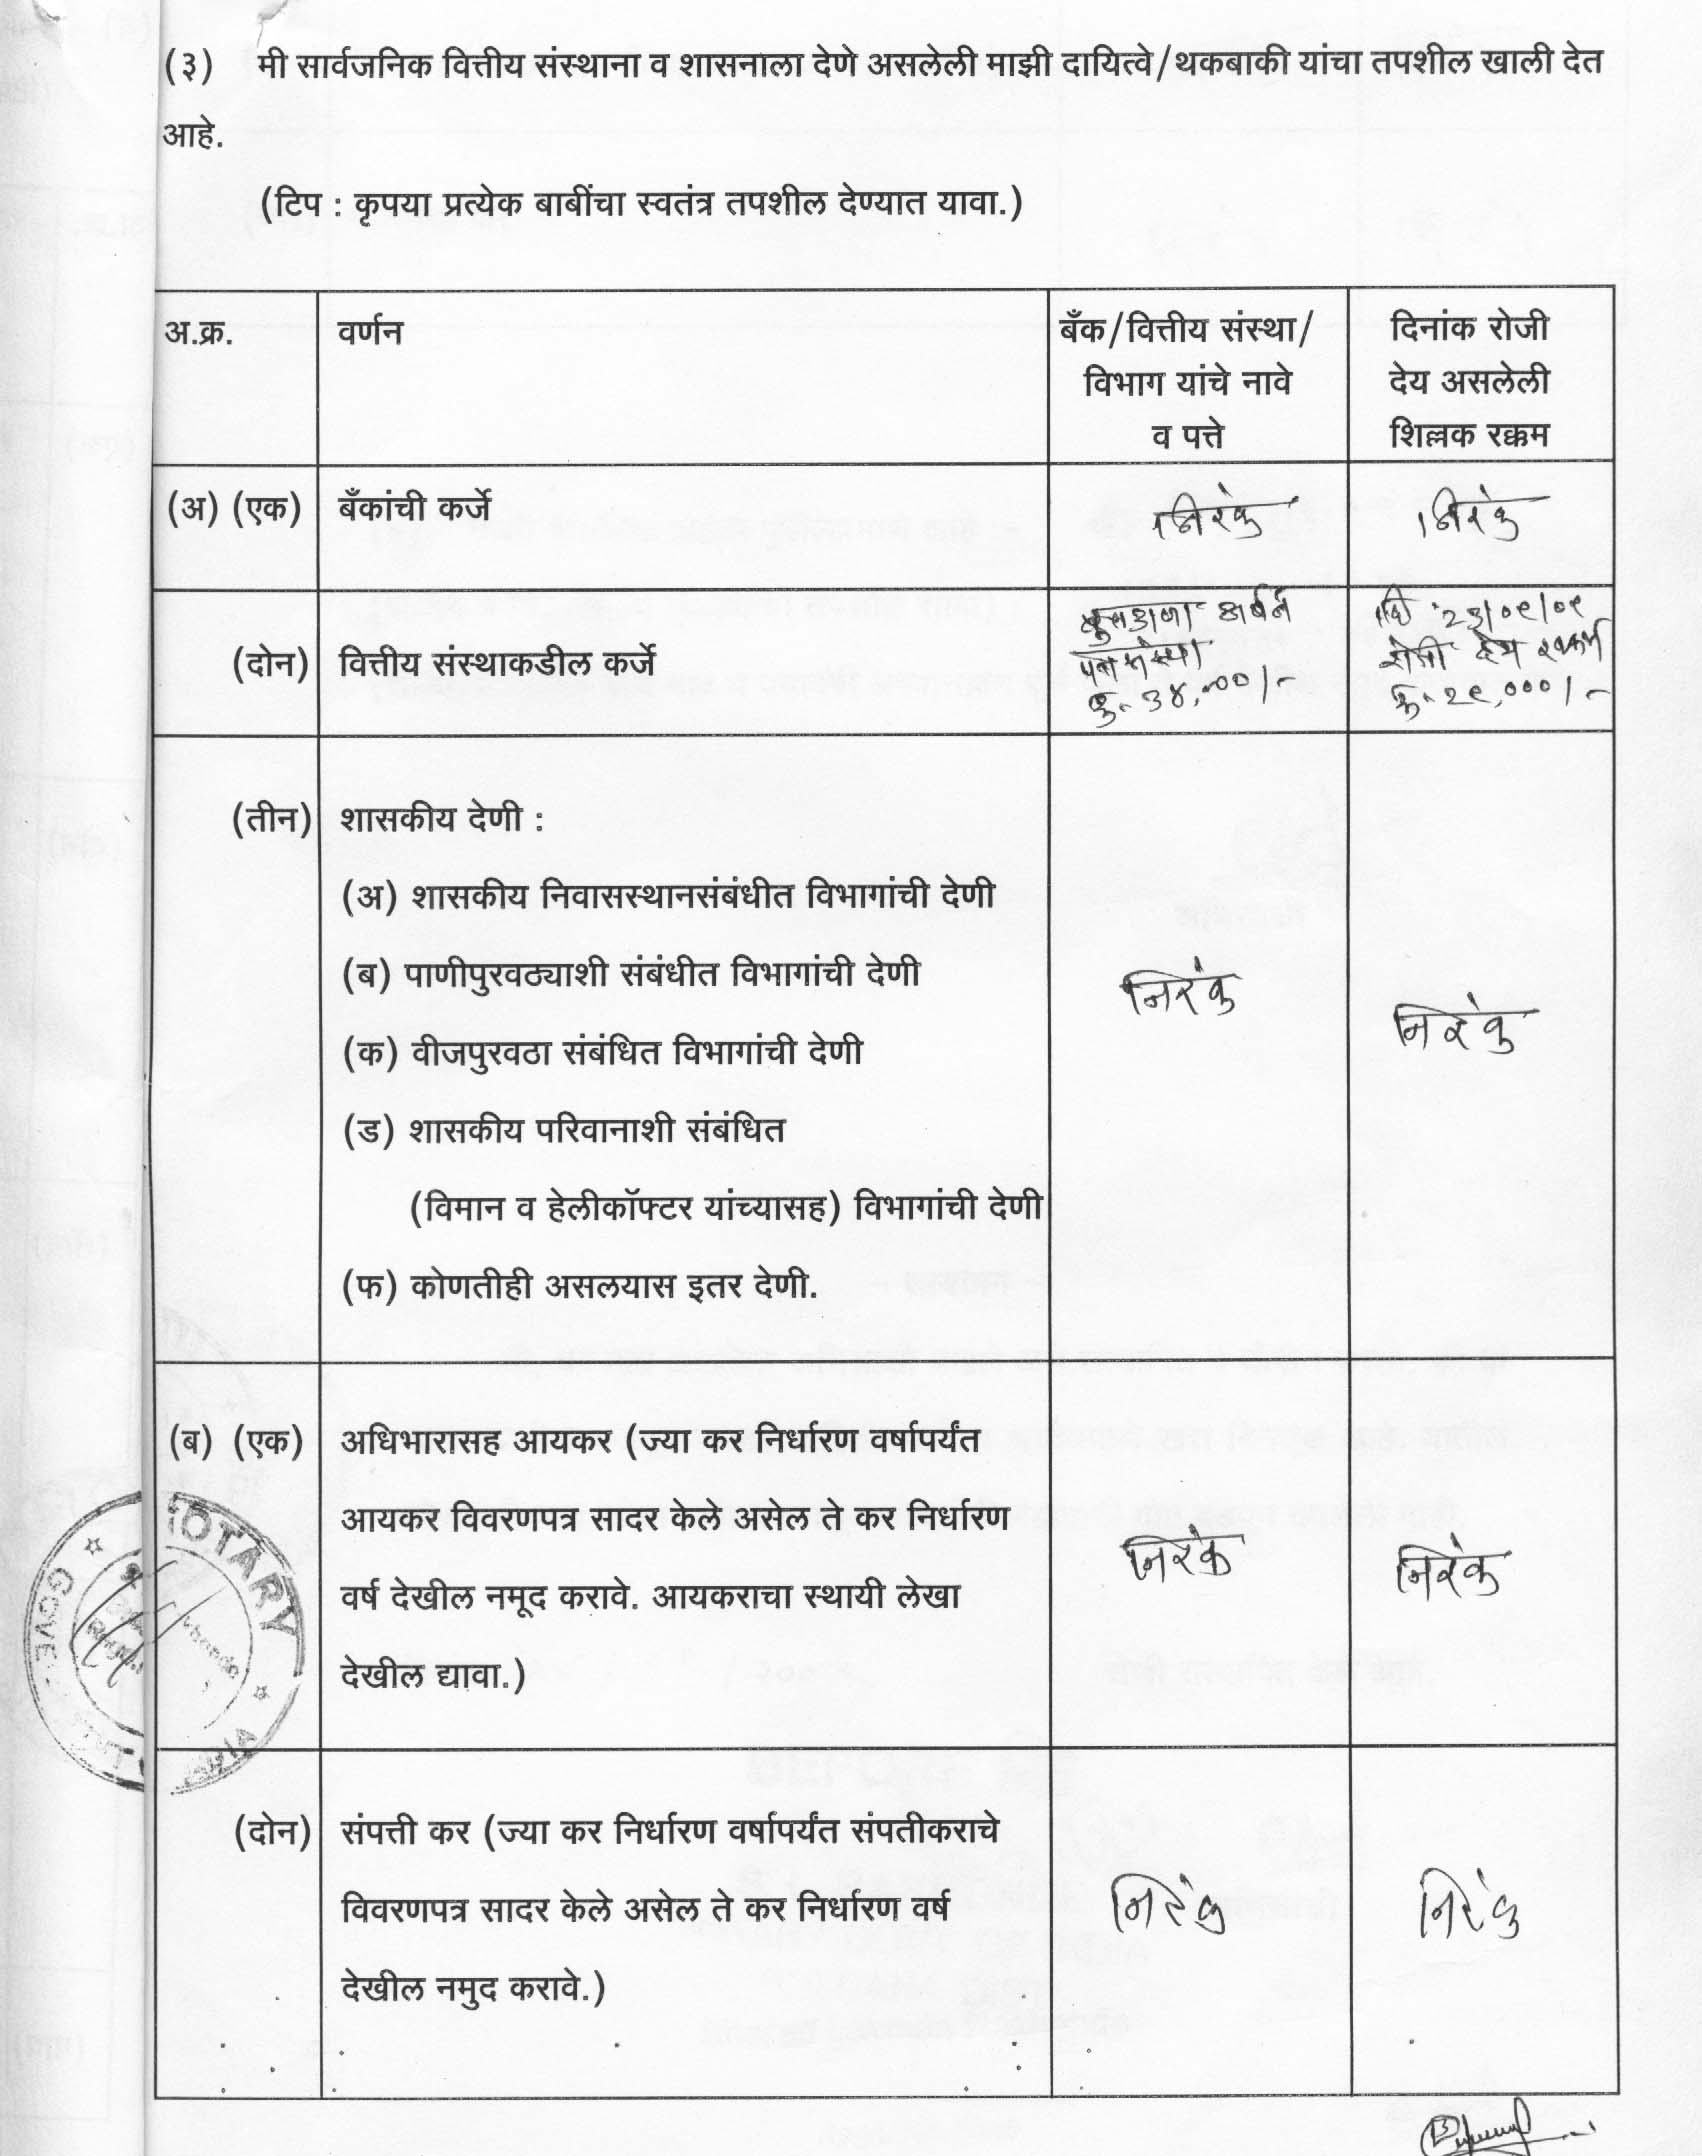 (३) मी सार्वजनिक वित्तीय संस्थाना व शासनाला देणे असलेली माझी दायित्वे/थकबाकी यांचा तपशील खाली देत
आहे.
(टिप : कृपया प्रत्येक बाबींचा स्वतंत्र तपशील देण्यात यावा.)
अ.क्र.
वर्णन
बँक/वित्तीय संस्था/
विभाग यांचे नावे
व पत्ते
दिनांक रोजी
देय असलेली
शिल्लक रक्कम
(अ) (एक) बँकांची कर्जे
निरंक
निरंक
(दोन) वित्तीय संस्थाकडील कर्जे
बुलडाणा अर्बन
पतसंस्था
रु. ३४,०००/-
दि २३/०९/०९
रोजी देय रक्कम
रु. २९,०००/-
(तीन) शासकीय देणी :
(अ) शासकीय निवासस्थानसंबंधीत विभागांची देणी
(ब) पाणीपुरवठ्याशी संबंधीत विभागांची देणी
(क) वीजपुरवठा संबंधित विभागांची देणी
(ड) शासकीय परिवानाशी संबंधित
(विमान व हेलीकॉफ्टर यांच्यासह) विभागांची देणी
(फ) कोणतीही असलयास इतर देणी.
निरंक
निरंक
(ब) (एक) अधिभारासह आयकर (ज्या कर निर्धारण वर्षापर्यंत
आयकर विवरणपत्र सादर केले असेल ते कर निर्धारण
वर्ष देखील नमूद करावे. आयकराचा स्थायी लेखा
देखील द्यावा.)
निरंक
निरंक
NOTARY
(दोन) संपत्ती कर (ज्या कर निर्धारण वर्षापर्यंत संपतीकराचे
विवरणपत्र सादर केले असेल ते कर निर्धारण वर्ष
देखील नमुद करावे.)
निरंक
निरंक